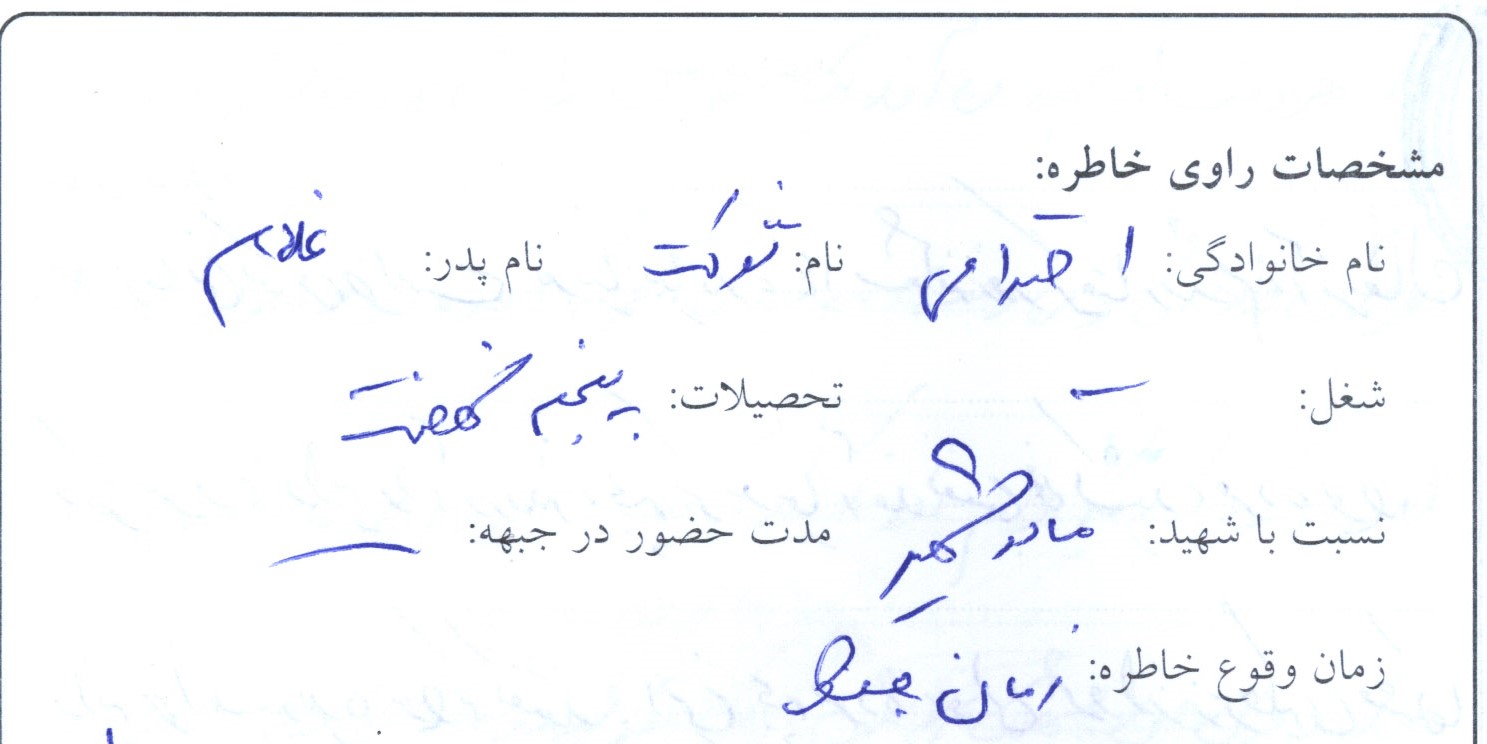 مشخصات راوی خاطره:
نام خانوادگی: احترامی نام: شوکت نام پدر: غلام
شغل: – تحصیلات: پنجم نهضت
نسبت با شهید: مادر شهید مدت حضور در جبهه: —
زمان وقوع خاطره: زمان جنگ